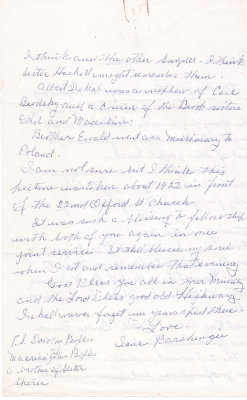 I think and the other Snyder. I think
sister Haskett might remember them.
Albert Dakal was a nephew of Carl
Brodsky and a cousin of the Brook sisters
Ethel and Madeline.
Brother Ewald went as a missionary to
Poland.
I am not sure but I think this
picture was taken about 1922 in front
of the 22nd St church.
It was such a blessing to fellowship
with both of you again in our
joint services. It still blesses my soul
when I sit and remember that evening
God Bless you all in your Ministry
and the Lord Bless good old Highway
I shall never forget my years spent there.
Love
Irene
P.S.
Married
a brother of Sister
Sherer